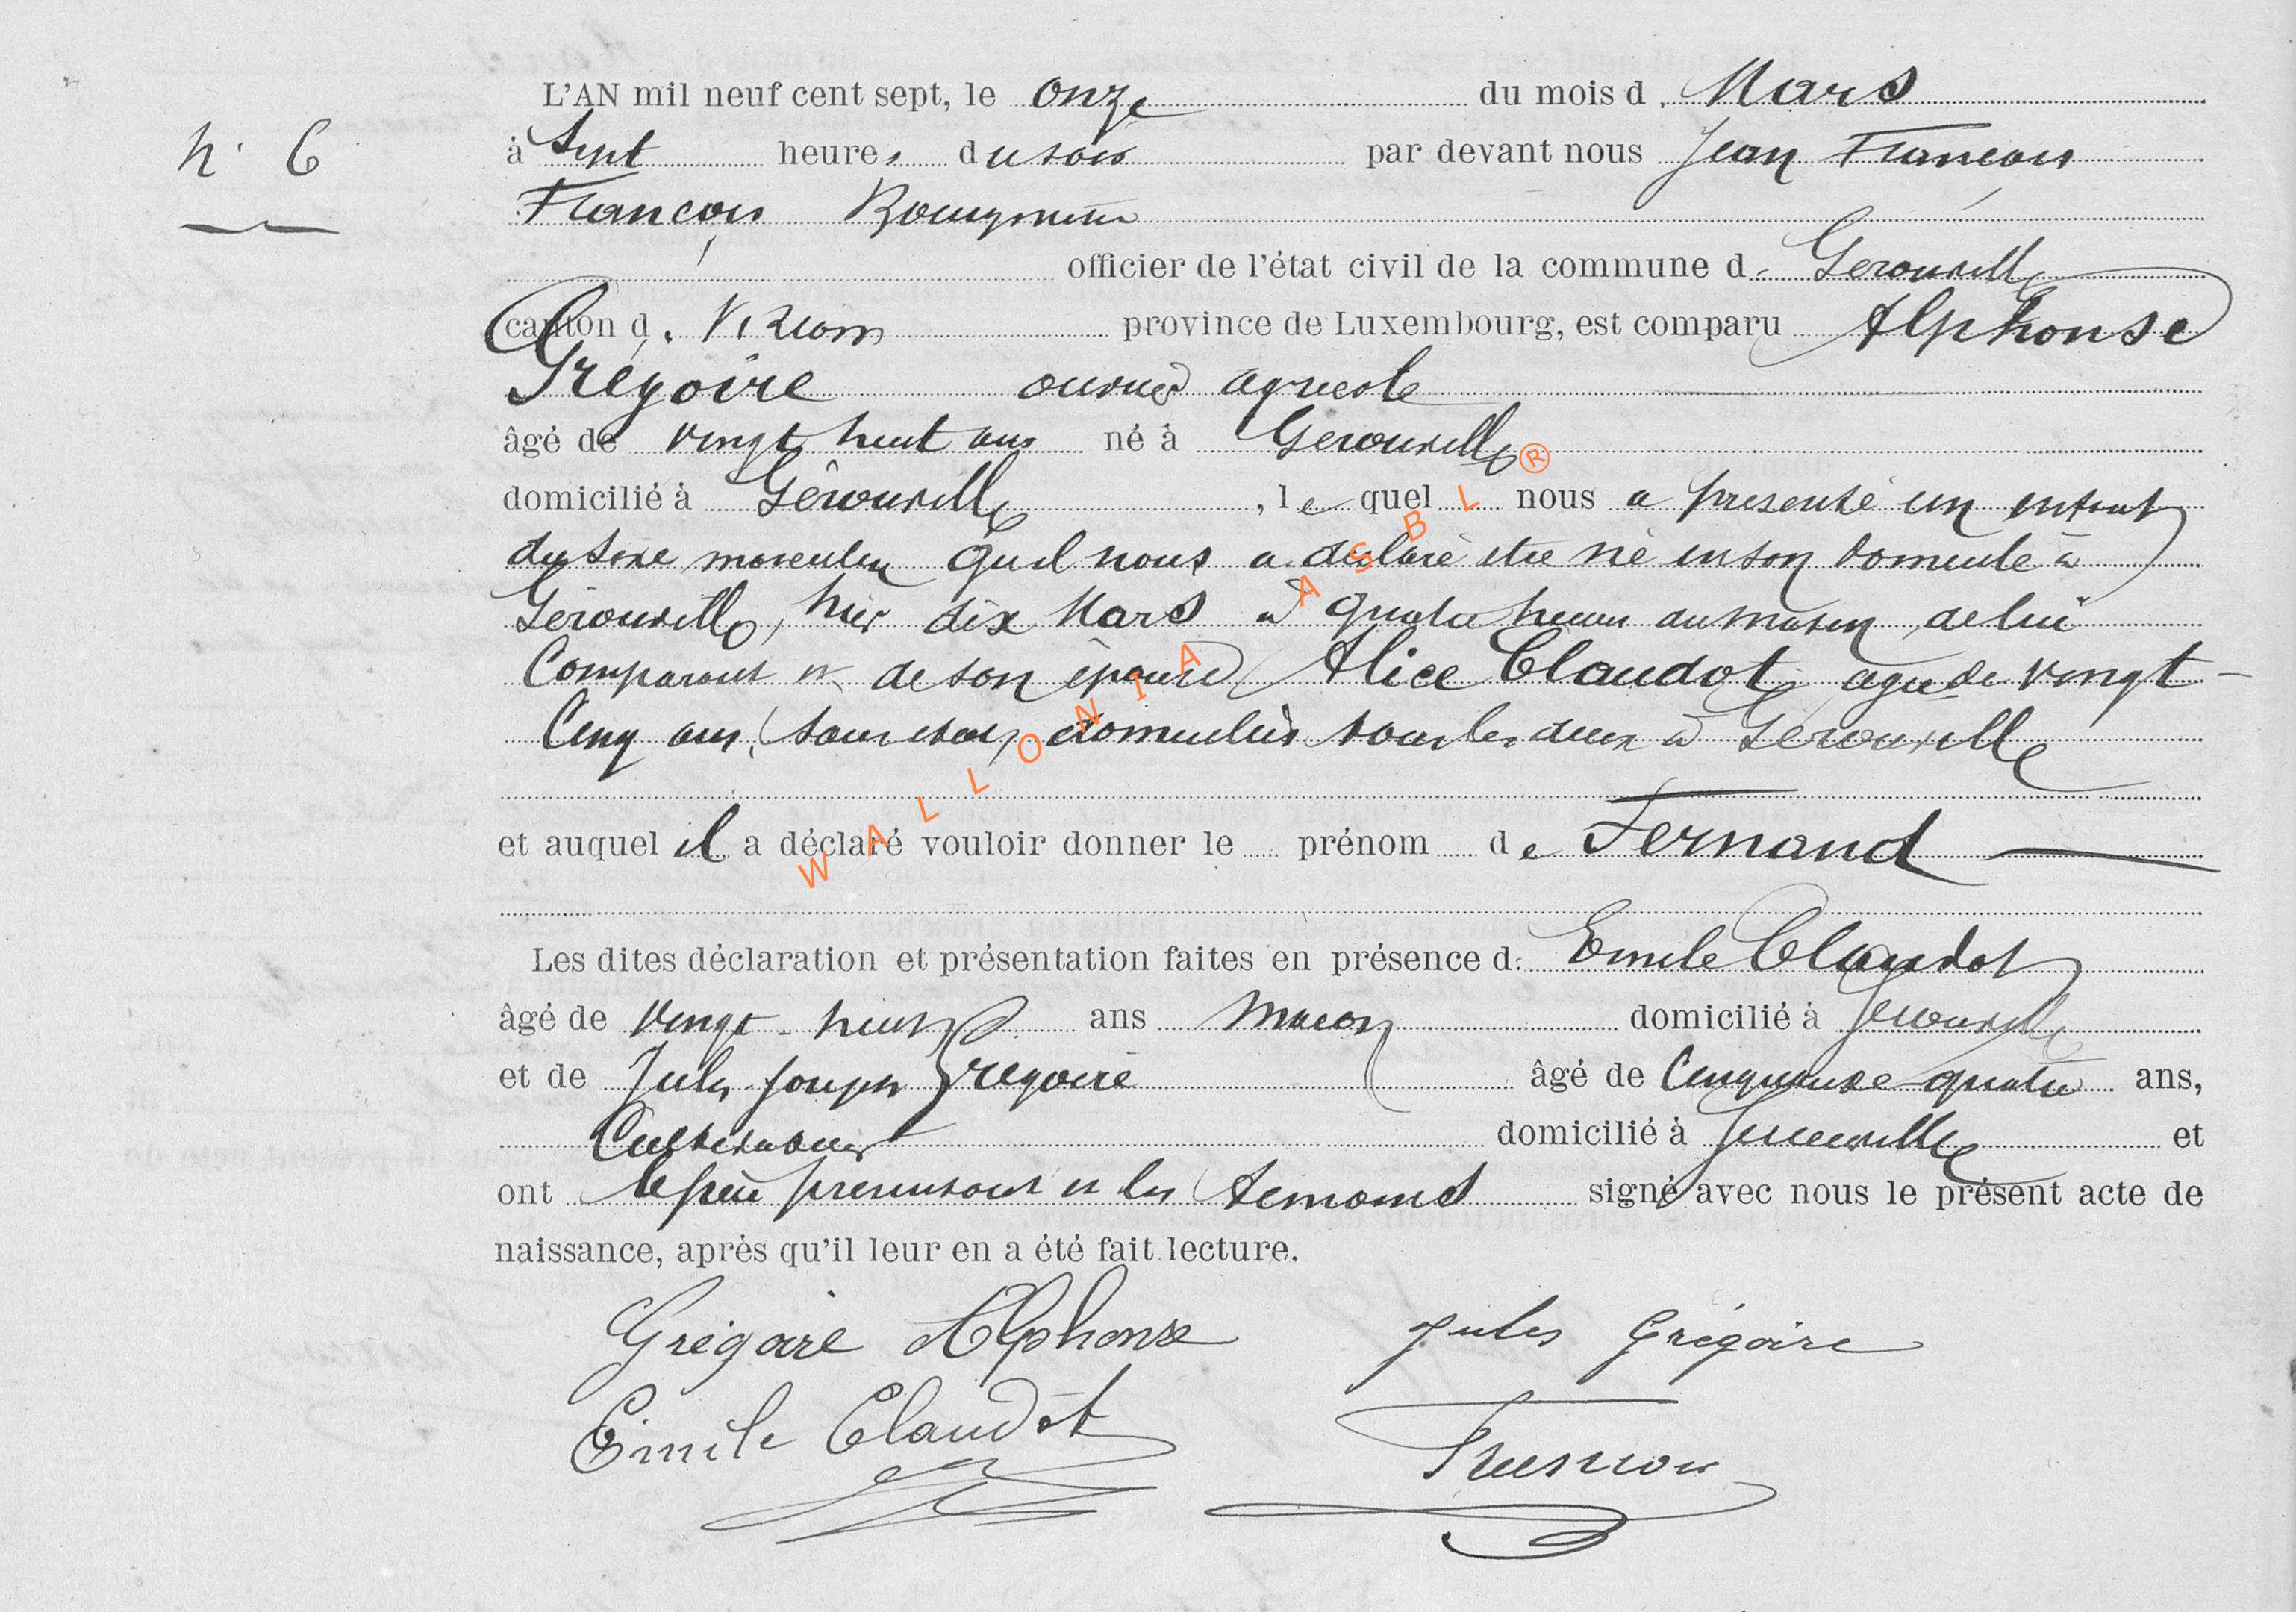 L'AN mil neuf cent sept, le onze du mois d. Mars
n° 6
à Sept heures du soir par devant nous Jean François
François
officier de l'état civil de la commune de Gerouville
canton d. Virton province de Luxembourg, est comparu Alphonse
Grégoire ouvrier agricole
âgé de vingt huit ans né à Gerouville
domicilié à Gérouville, lequel nous a présenté un enfant
du sexe masculin qu'il nous a déclaré être né en son domicile à
Gérouville, hier dix Mars à quatre heures du matin, de lui
Comparant et de son épouse Alice Claudot, agée de vingt-
Cinq ans, domiciliés tous les deux à Gérouville
et auquel il a déclaré vouloir donner le prénom de Fernand
Les dites déclaration et présentation faites en présence d. Emile Claudot
âgé de vingt-huit ans Macon domicilié à Gerouville
et de Jules Joseph Grégoire âgé de Cinquante-quatre ans,
Cultivateur domicilié à Gerouville et
ont le père présentant et les temoins signé avec nous le présent acte de
naissance, après qu'il leur en a été fait lecture.
Grégoire Alphonse Jules Grégoire
Emile Claudot
WALLONIA ASBL ®